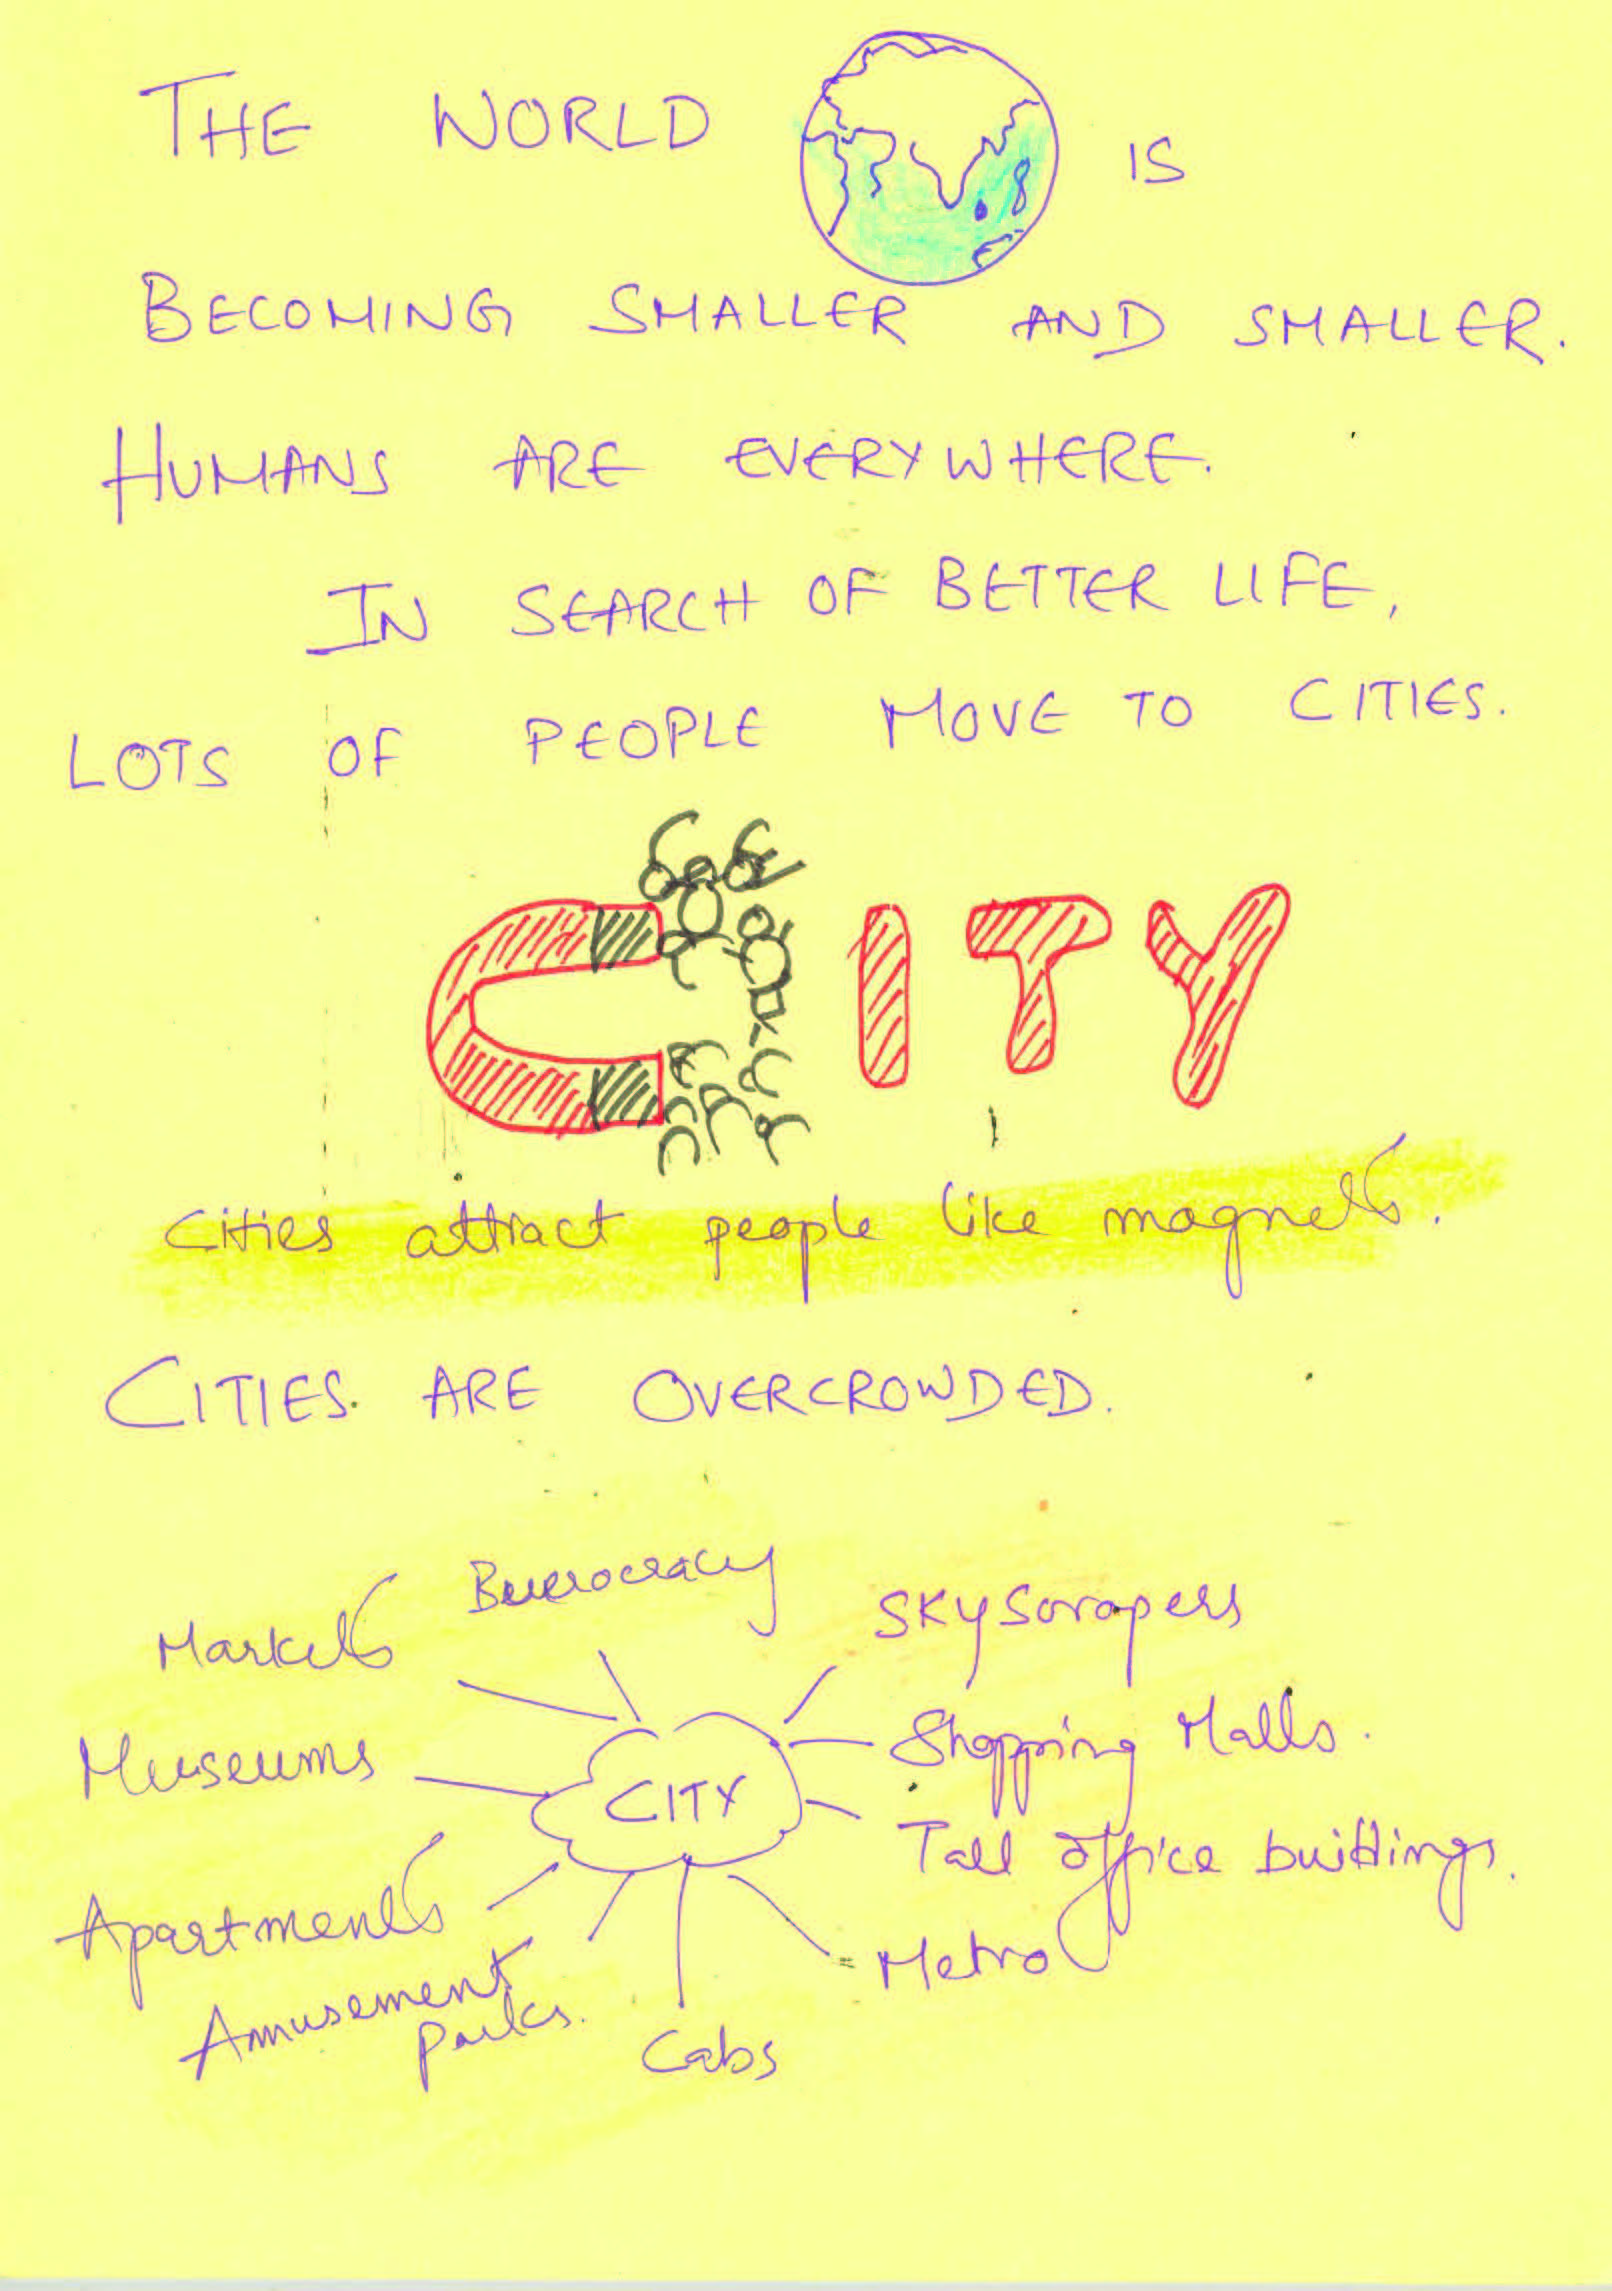 THE WORLD IS
BECOMING SMALLER AND SMALLER.
HUMANS ARE EVERYWHERE.
IN SEARCH OF BETTER LIFE,
LOTS OF PEOPLE MOVE TO CITIES.
CITY
Cities attract people like magnets.
CITIES ARE OVERCROWDED.
Buerocracy
Markets
Skyscrapers
Museums
Shopping Malls.
CITY
Tall office buildings.
Apartments
Metro
Amusement
Parks.
Cabs